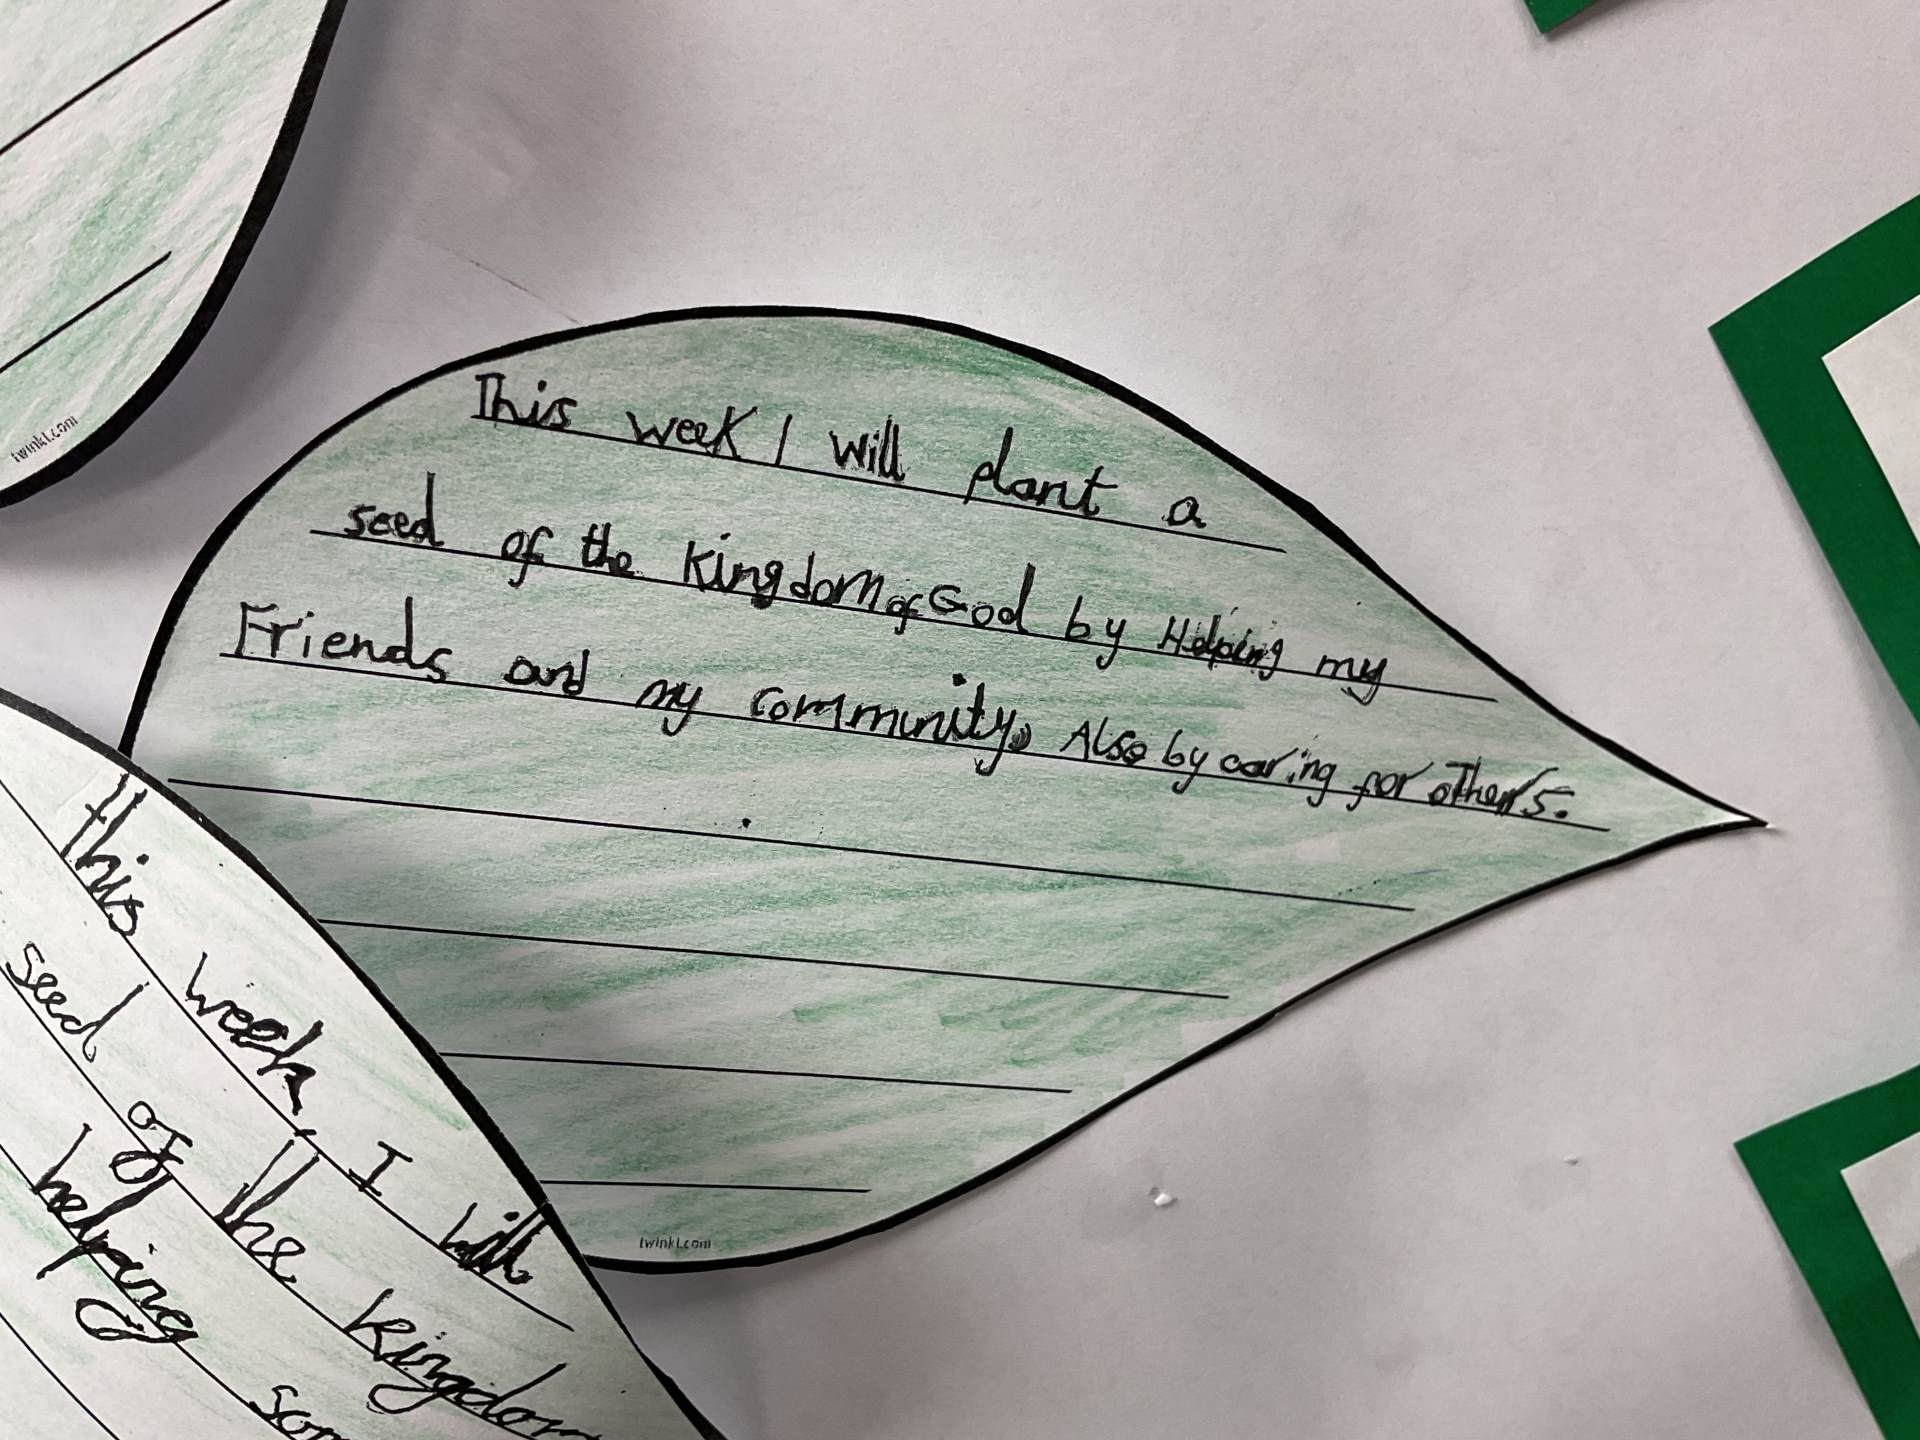 twinkl.com
This week I will plant a
seed of the Kingdom of God by Helping my
Friends and my community. Also by caring for others.
twinkl.com
this week, I will
seed of the kingdom
helping som